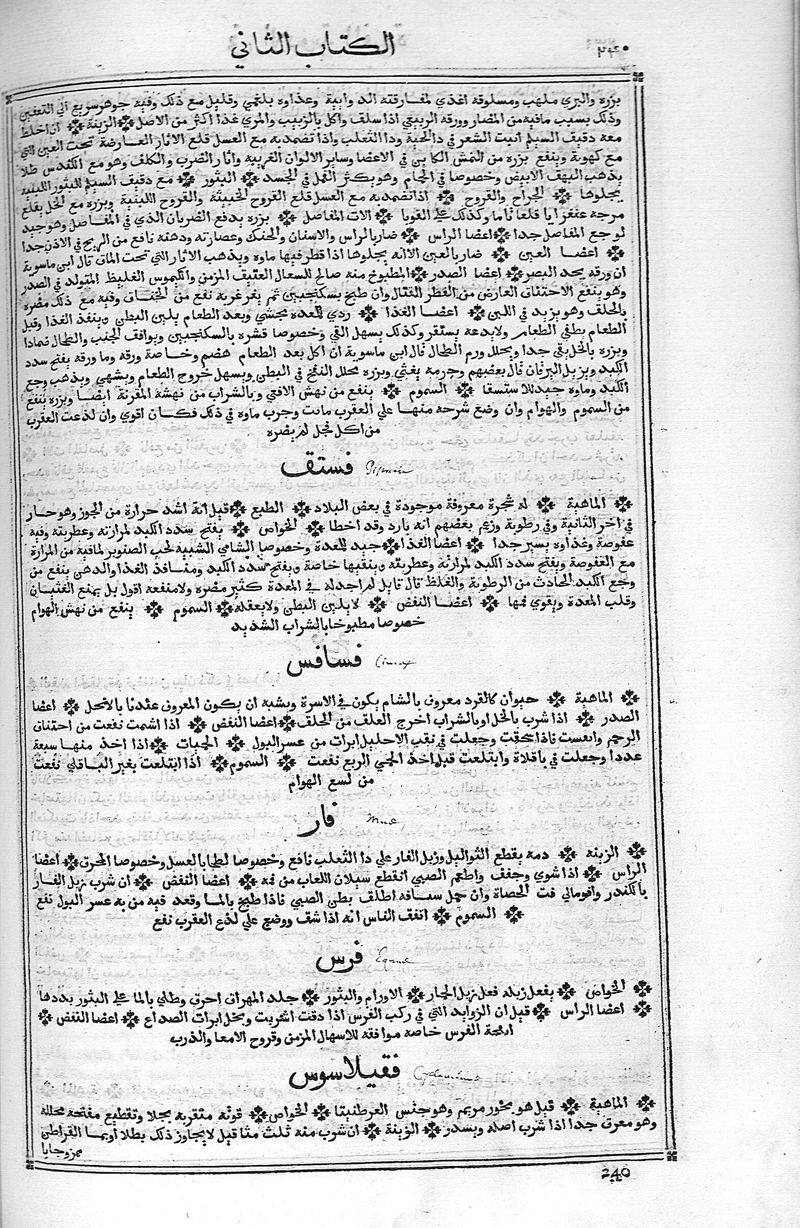 الكتاب الثاني
٢٤٠
بزره والبري ملهب ومسلوقه اغذي لمفارقته الدوايية وغذاوه بلغمي وقليل مع ذلك وفيه جوهر سريع الي التعفين
وذلك بسبب مافيه من المضار وورقه الربيعي اذا سلف واكل بالزيت والمري غذا اكثر من الاصل الزينة ان اخلط
معه دقيق السيلم انبت الشعر في دا الحية ودا الثعلب واذا تضمد به مع العسل قلع الاثار العارضة تحت العين التي
مع كهوبة وينفع بزره من النمش الكاين في الاعضا وساير الالوان الغريبة واثار الضرب والكلف وهو مع الكندس طلا
يذهب البهق الابيض وخصوصا في الحمام وهو يكثر القمل في الجسد البثور مع دقيق السيلم للبثور اللبنية
يجلوها الجراح والقروح اذا تضمد به مع العسل قلع القروح الخبيثة والقروح اللبنية وبزره مع الخل يقلع
قلعا تاما وكذلك علي القوبا الات المفاصل بزره يدفع الضربان الذي في المفاصل وهو جيد
لوجع المفاصل جدا اعضا الراس ضار بالراس والاسنان والحنك وعصارته ودهنه نافع من الريح في الاذن جدا
اعضا العين ضار بالعين الا انه يجلوها اذا قطر فيها ماوه ويذهب الاثار التي تحت الماق قال ابن ماسوية
ان ورقه يحد البصر اعضا الصدر المطبوخ منه صالح للسعال العتيق المزمن والكيموس الغليظ المتولد في الصدر
وهو ينفع الاختناق العارض من الفطر القتال وان طبخ بسكنجبين ثم تغرغر به نفع من الخناق وفيه مع ذلك مضره
بالحلق وهو يزيد في اللبن اعضا الغذا ردي للمعدة مجشي وبعد الطعام يلين البطن وينفذ الغذا وقبل
الطعام يطفي الطعام ولا يدعه يستقر وكذلك يسهل القي وخصوصا قشره بالسكنجبين ويوافق الجنب والطحال ضمادا
وبزره بالخل يقي جدا ويحلل ورم الطحال قال ابن ماسوية ان اكل بعد الطعام هضم وخاصة ورقه وما ورقه يفتح سدد
الكبد ويزيل اليرقان قال بعضهم وجرمه يغثي وبزره محلل النفخ في البطن ويسهل خروج الطعام ويشهي ويذهب وجع
الكبد وماوه جيد للاستسقا السموم ينفع من نهش الافعي وبالشراب من نهشة المقرنة ايضا وبزره ينفع
من السموم والهوام وان وضع شرحه منها علي العقرب ماتت وجرب ماوه في ذلك فكان اقوي وان لذعت العقرب
من اكل فجل لم يضره
فستق
الماهية له شجرة معروفة موجودة في بعض البلاد الطبع قيل انه اشد حرارة من الجوز وهو حار
في اخر الثانية وفي رطوبة وزعم بعضهم انه بارد وقد اخطا الخواص يفتح سدد الكبد لمرارته وعطريته وفيه
عفوصة وغذاوه يسير جدا اعضا الغذا جيد للمعدة وخصوصا الشامي الشبيه لحب الصنوبر لمافيه من المرارة
مع العفوصة ويفتح سدد الكبد لمرارته وعطريته وينقيها خاصة ويفتح سدد الكبد ومنافذ الغذا والدهن ينفع من
وجع الكبد الحادث من الرطوبة والغلظ قال قايل لم اجد له في المعدة كثير مضره ولا منفعه اقول بل يمنع الغثيان
وقلب المعدة ويقوي فمها اعضا النفض لا يلين البطن ولا يعقله السموم ينفع من نهش الهوام
خصوصا مطبوخا بالشراب الشديد
فسافس Cimex
الماهية حيوان كالقرد معروف بالشام يكون في الاسرة ويشبه ان يكون المعروف عندنا بالانجل اعضا
الصدر اذا شرب بالخل او بالشراب اخرج العلق من الحلق اعضا النفض اذا اشتمت نفعت من اختناق
الرحم وانعست فاذا سحقت وجعلت في ثقب الاحليل ابرات من عسر البول الحميات اذا اخذ منها سبعة
عددا وجعلت في باقلاة وابتلعت قبل اخذ الحمي الربع نفعت السموم اذا ابتلعت بغير الباقلي نفعت
من لسع الهوام
فار
الزينة دمه يقطع الثواليل وزبل الفار علي دا الثعلب نافع وخصوصا لطخا بالعسل وخصوصا المحرق اعضا
الراس اذا شوي وجفف واطعم الصبي انقطع سيلان اللعاب من فمه اعضا النفض ان شرب زبل الفار
بالكندر واقومالي فت الحصاة وان حمل شيافه اطلق بطن الصبي فاذا طبخ بالما وقعد فيه من به عسر البول نفع
السموم اتفق الناس انه اذا شق ووضع علي لذع العقرب نفع
فرس
الخواص يفعل زبله فعل زبل الحمار الاورام والبثور جلد المهراق احرق وطلي بالما علي البثور بددها
اعضا الراس قيل ان الزوايد التي في ركب الفرس اذا دقت اشربت وبخل ابرات الصداع اعضا النفض
انفحة الفرس خاصة موافقه للاسهال المزمن وقروح الامعا والذرب
فقيلاسوس
الماهية قيل هو بخور مريم وهو جنس العرطنيثا الخواص قوته متقربه بجلا وتقطيع مفتحه محلله
وهو معرق جدا اذا شرب اصله ويسدر الزينة ان شرب منه ثلث مثاقيل لا يجاوز ذلك بطلا او بما القراطن
ممزوجا با
240